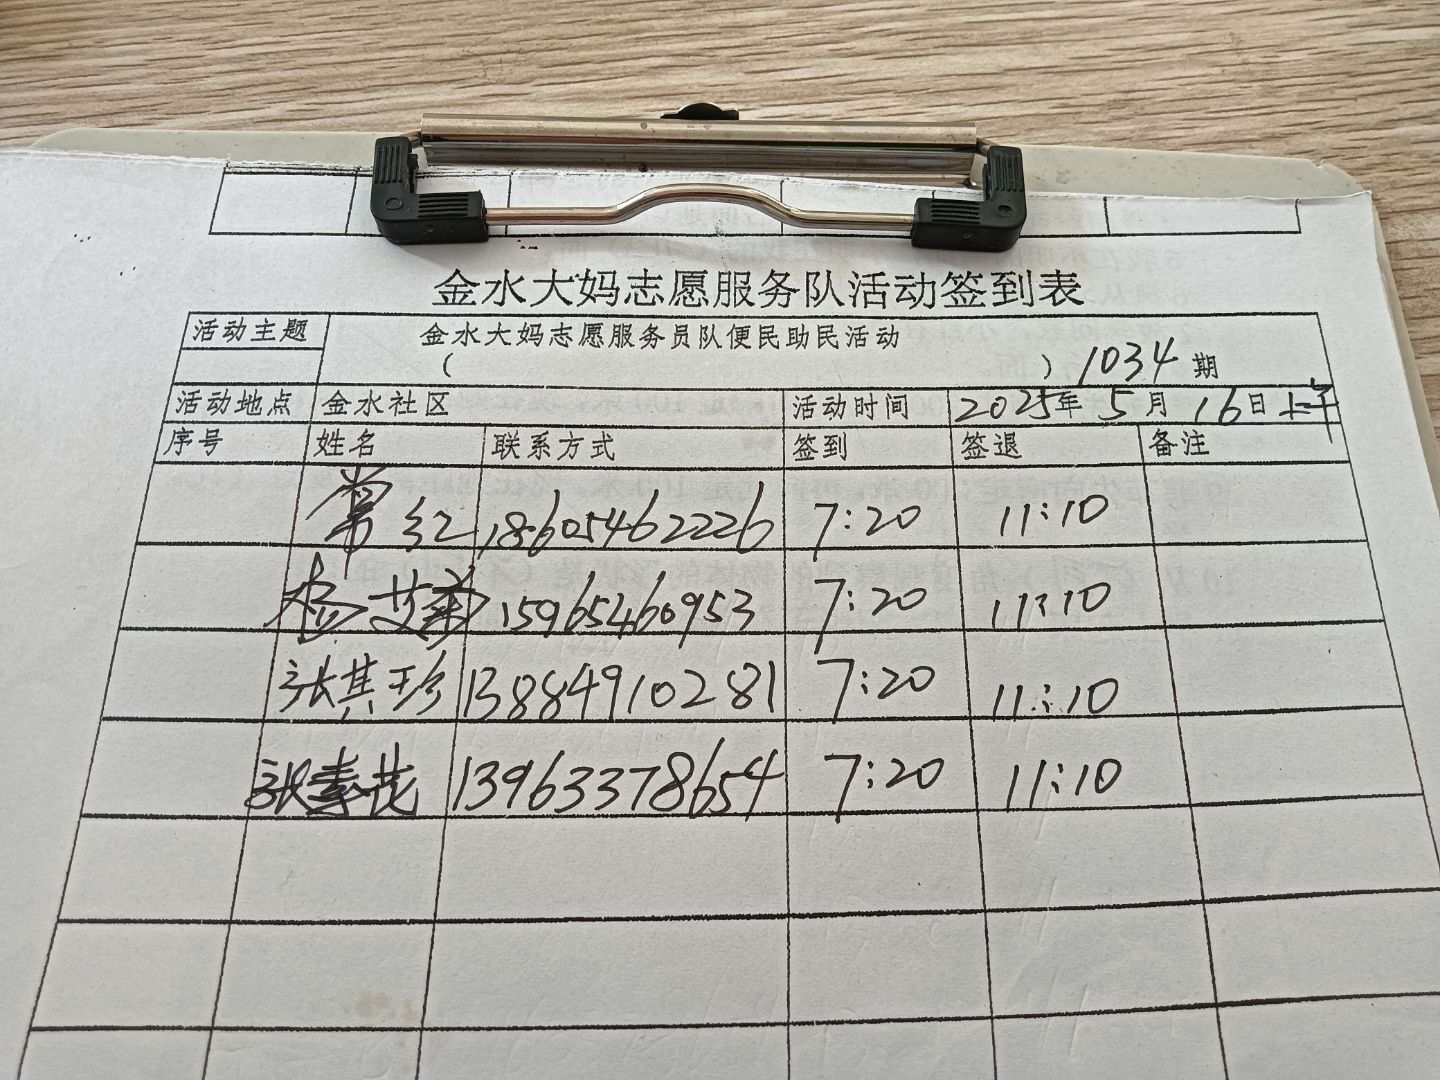 金水大妈志愿服务队活动签到表
活动主题 金水大妈志愿服务员队便民助民活动
( ) 1034 期
活动地点 金水社区 活动时间 2025年 5月 16日 上午
序号 姓名 联系方式 签到 签退 备注
常红 18605462226 7:20 11:10
杨艾菊 15965460953 7:20 11:10
张其珍 13884910281 7:20 11:10
张素花 13963378654 7:20 11:10